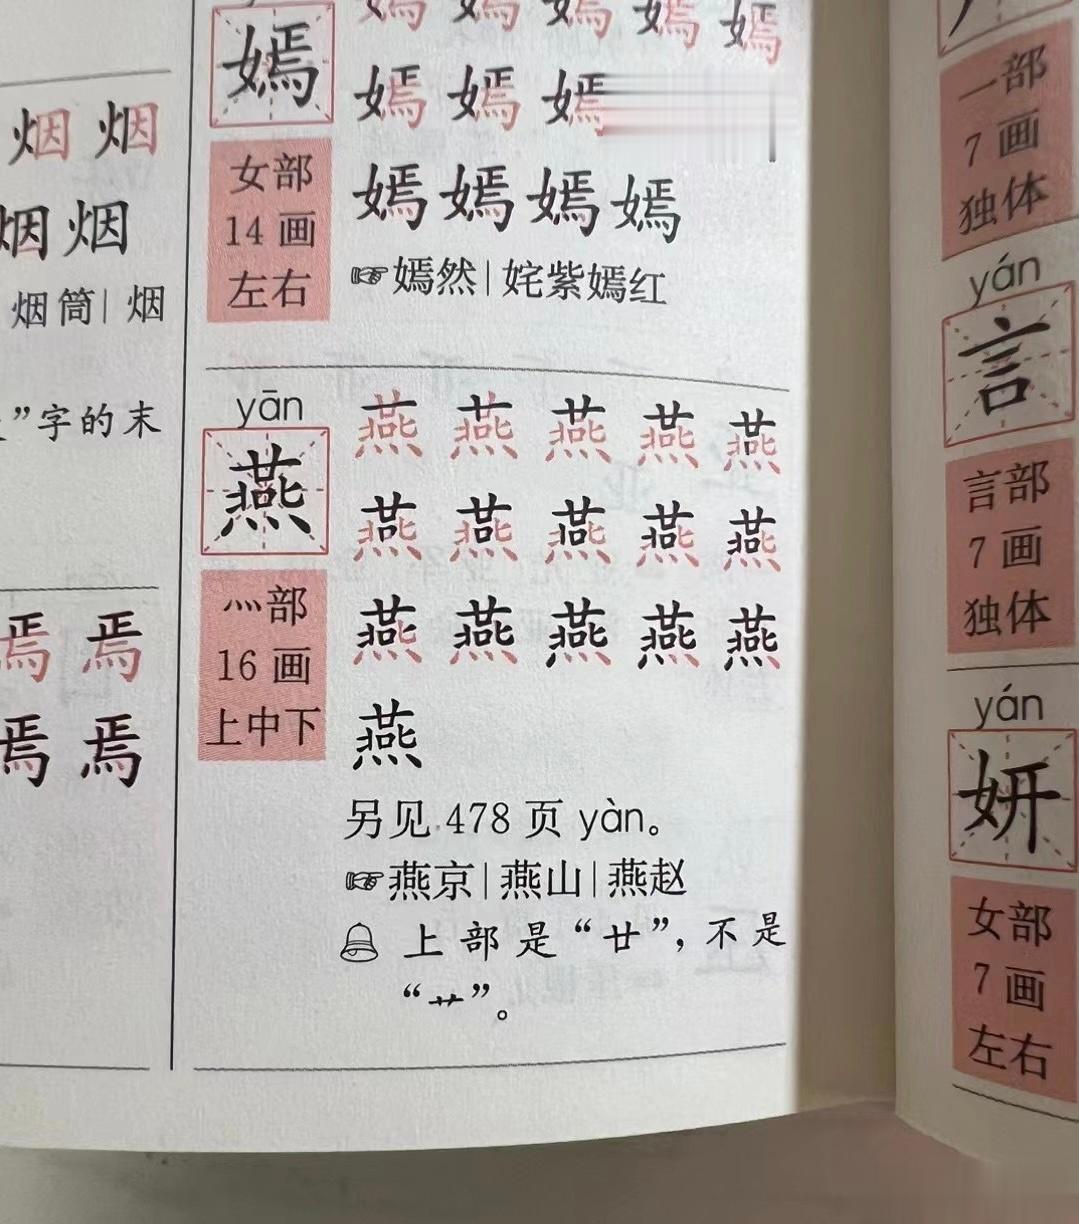 烟 烟
烟 烟
烟筒| 烟
”字的末
焉 焉
焉 焉
嫣
女部
14 画
左右
嫣 嫣 嫣 嫣 嫣
嫣 嫣 嫣
嫣 嫣 嫣 嫣
☞嫣然|姹紫嫣红
yān
燕
灬部
16 画
上中下
燕 燕 燕 燕 燕
燕 燕 燕 燕 燕
燕 燕 燕 燕 燕
燕
另见 478 页 yàn。
☞燕京|燕山|燕赵
上部是“廿”，不是
“艹”。
一部
7 画
独体
yán
言
言部
7 画
独体
yán
妍
女部
7 画
左右